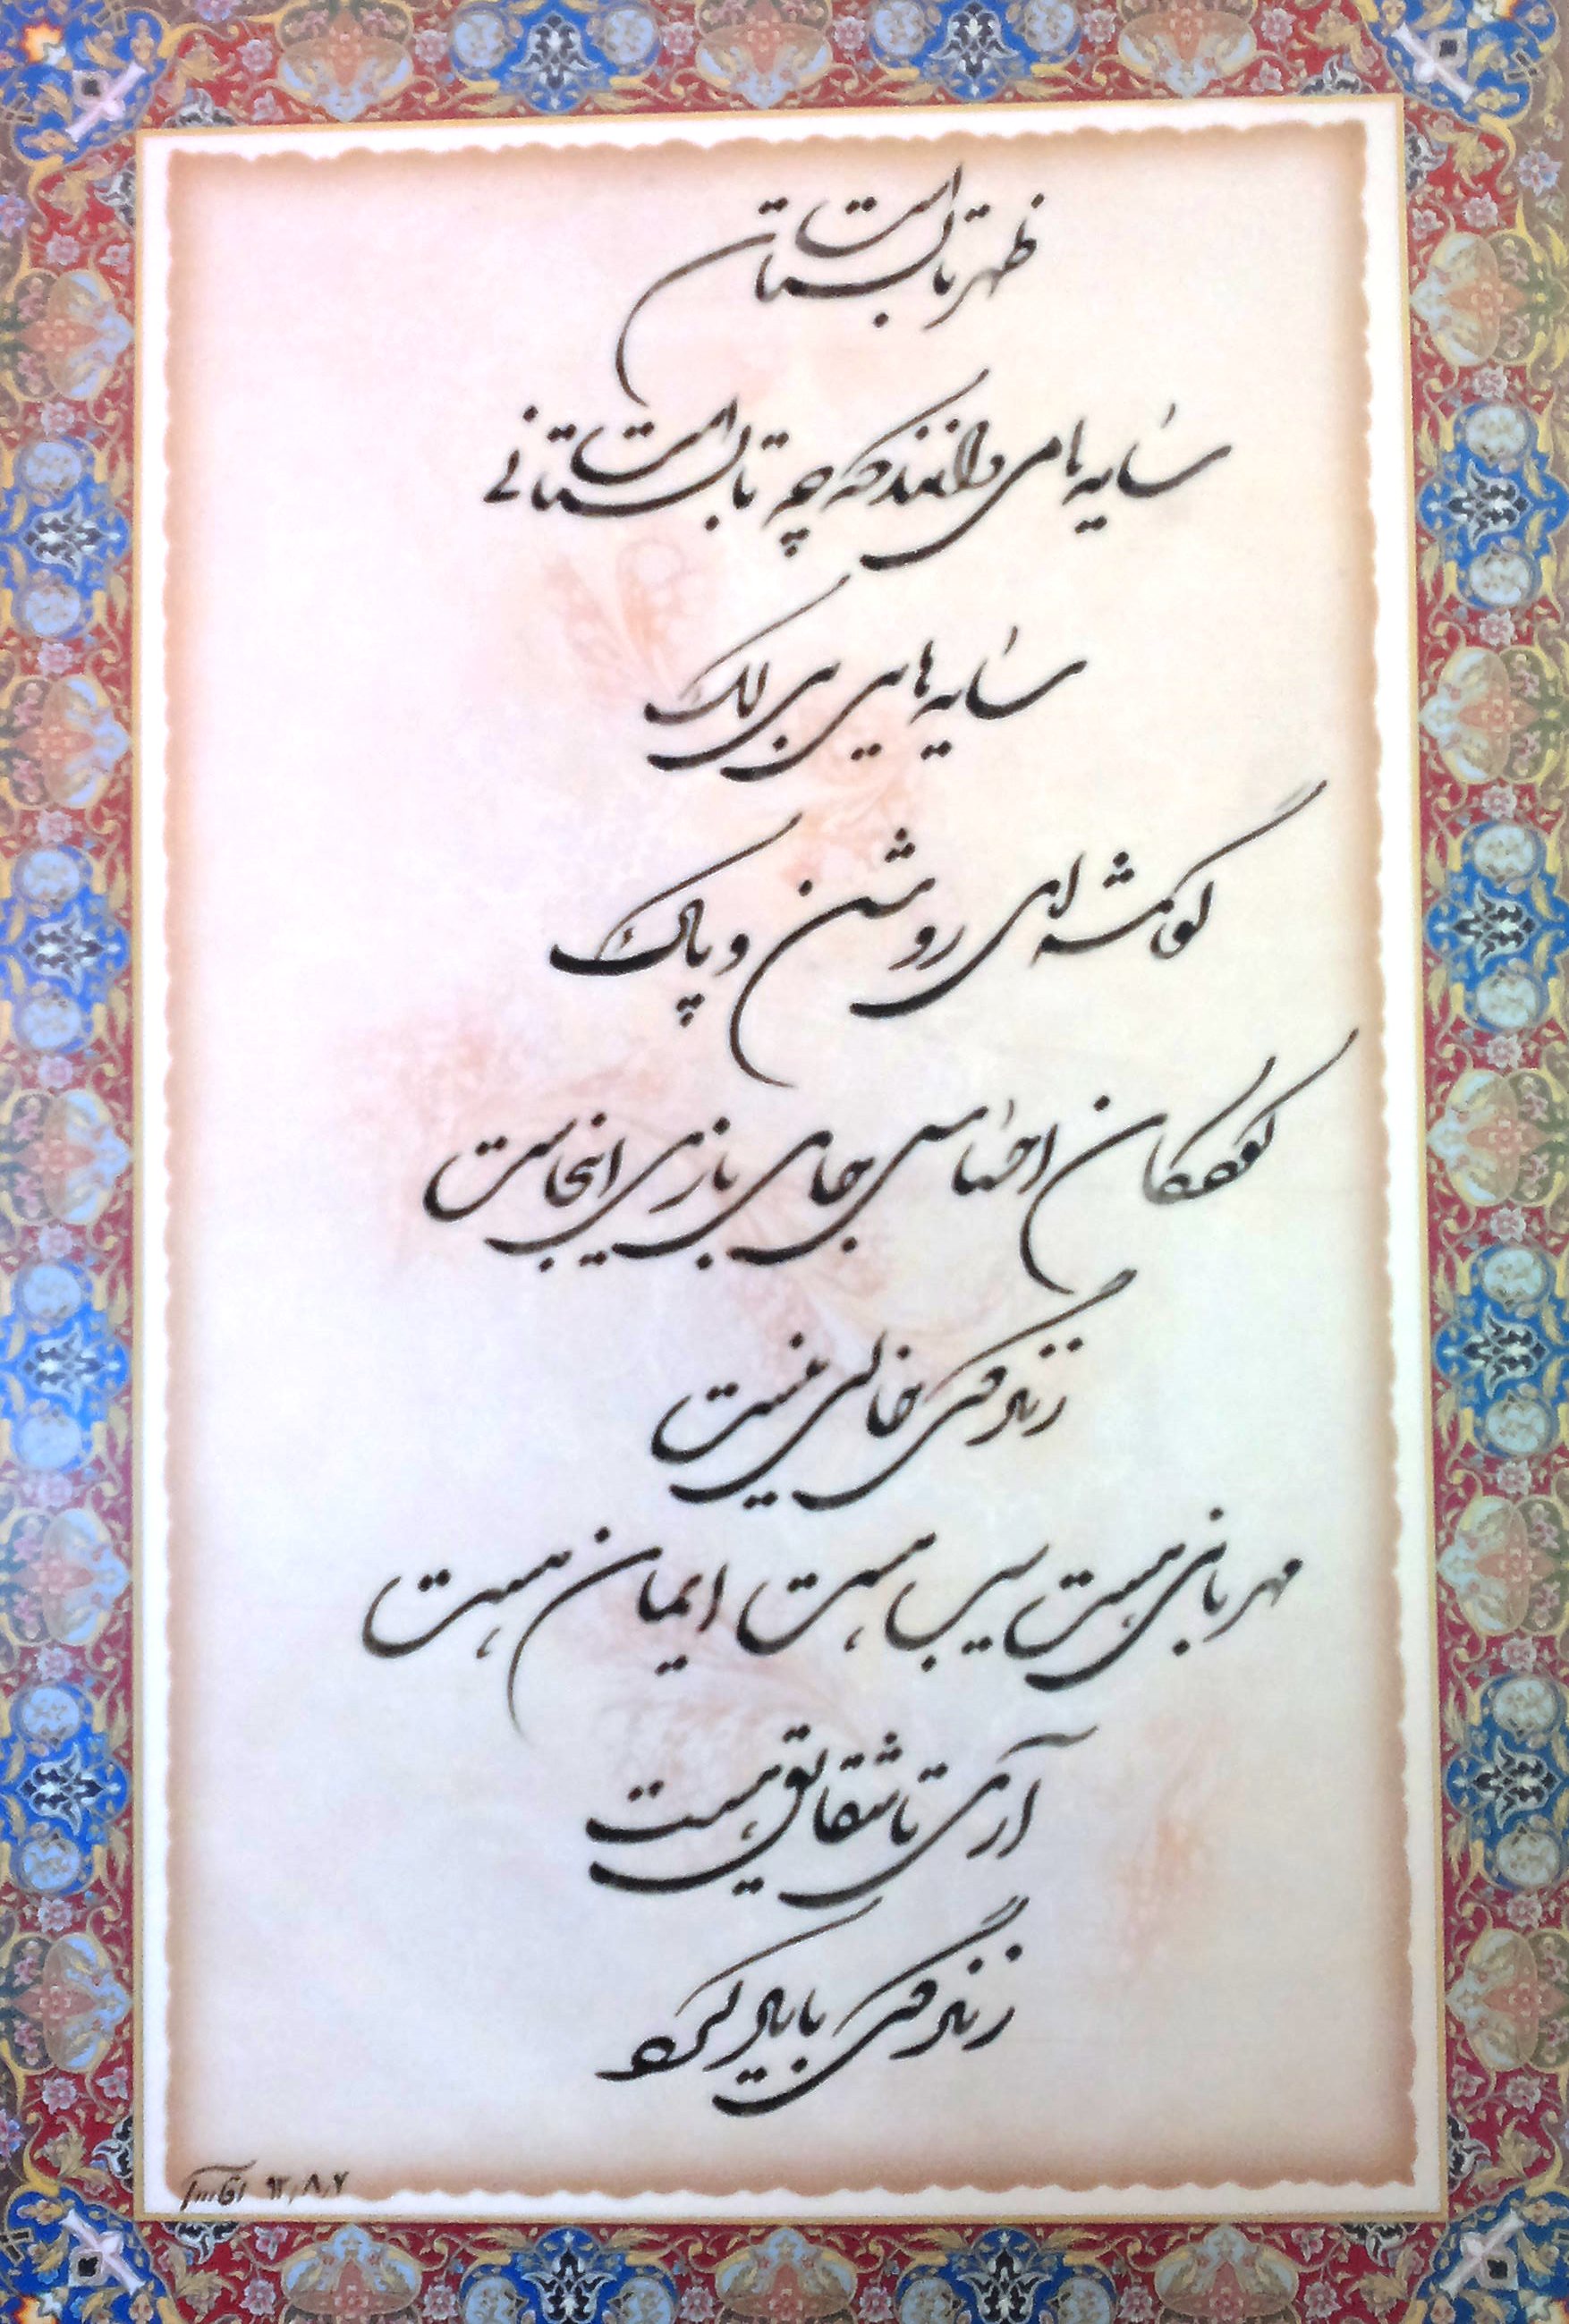 ظهر تابستان است
سایه ها می دانند که چه تابستانی است
سایه هایی بی لک
گوشه ای روشن و پاک
کودکان احساس جای بازی اینجاست
زندگی خالی نیست
مهربانی هست سیب هست ایمان هست
آری تا شقایق هست
زندگی باید کرد
۹۲,۸,۷